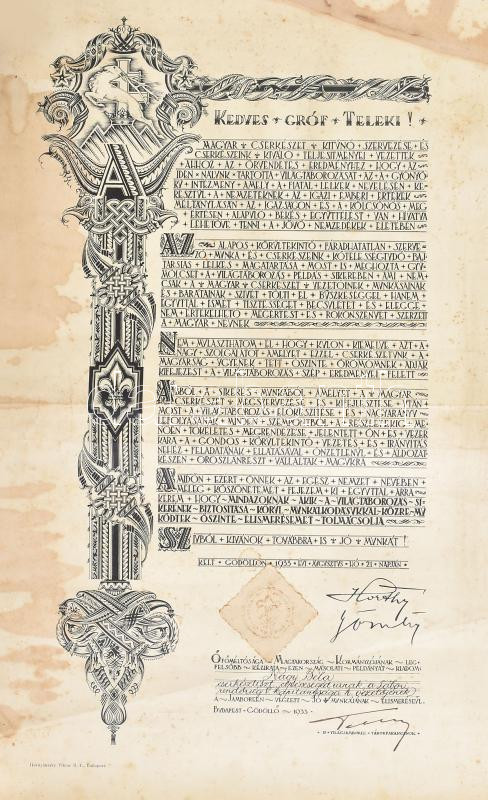 KEDVES + GRÓF + TELEKI !
A MAGYAR CSERKÉSZET KITŰNŐ SZERVEZÉSE + ÉS
CSERKÉSZEINK + KIVÁLÓ + TELJESÍTMÉNYEI + VEZETTEK
AHHOZ + AZ + ÖRVENDETES + EREDMÉNYHEZ + HOGY + AZ
IDÉN + NÁLUNK + TARTOTTA + VILÁGTÁBOROZÁSÁT + AZ + A GYÖNYÖ-
RŰ + INTÉZMÉNY + AMELY + A + FIATAL + LELKEK + NEVELÉSÉN + KE-
RESZTÜL + A + NEMZETEKNEK + AZ + IGAZI + EMBERI + ÉRTÉKEK
MÉLTÁNYLÁSÁN + AZ + IGAZSÁGON + ÉS + A + KÖLCSÖNÖS + MEG-
ÉRTÉSEN + ALAPULÓ + BÉKÉS + EGYÜTTÉLÉST + VAN + HIVATVA
LEHETŐVÉ + TENNI + A + JÖVŐ + NEMZEDÉKEK + ÉLETÉBEN
AZ ALAPOS + KÖRÜLTEKINTŐ + FÁRADHATATLAN + SZERVE-
ZŐ + MUNKA + ÉS + CSERKÉSZEINK + KÖTELESSÉGTUDÓ + BAJ-
TÁRSIAS + LELKES + MAGATARTÁSA + MOST + IS + MEGHOZTA + GYÜ-
MÖLCSÉT + A + VILÁGTÁBOROZÁS + PÉLDÁS + SIKERÉBEN + AMI + NEM-
CSAK + A + MAGYAR + CSERKÉSZET + VEZETŐINEK + MUNKÁSAINAK
ÉS + BARÁTAINAK + SZÍVÉT + TÖLTI + EL + BÜSZKESÉGGEL + HANEM
EGYÚTTAL + ISMÉT + TISZTESSÉGET + BECSÜLETET + ÉS + ELÉGGÉ
NEM + ÉRTÉKELHETŐ + MEGÉRTÉST + ÉS + ROKONSZENVET + SZERZETT
A + MAGYAR + NÉVNEK
NEM + MULASZTHATOM + EL + HOGY + KÜLÖN + KIEMELVE + AZT + A
NAGY + SZOLGÁLATOT + AMELYET + EZZEL + CSERKÉSZETÜNK + A
MAGYARSÁG + ÜGYÉNEK + TETT + ŐSZINTE + ÖRÖMÖMNEK + ADJAK
KIFEJEZÉST + A + VILÁGTÁBOROZÁS + SZÉP + EREDMÉNYEI + FELETT
ABBÓL + A + SIKERES + MUNKÁBÓL + AMELYET + A + MAGYAR
CSERKÉSZET + MEGSZERVEZÉSE + ÉS + KIFEJLESZTÉSE + UTÁN
MOST + A + VILÁGTÁBOROZÁS + ELŐKÉSZÍTÉSE + ÉS + NAGYARÁNYÚ
LEFOLYÁSÁNAK + MINDEN + SZEMPONTBÓL + A + RÉSZLETEKIG + ME-
NŐEN + TÖKÉLETES + MEGRENDEZÉSE + JELENTETT + ÖN + ÉS + VEZÉR-
KARA + A + GONDOS + KÖRÜLTEKINTŐ + VEZETÉS + ÉS + IRÁNYÍTÁS
NEHÉZ + FELADATÁNAK + ELLÁTÁSÁVAL + ÖNZETLENÜL + ÉS + ÁLDOZAT-
KÉSZEN + OROSZLÁNRÉSZT + VÁLLALTAK + MAGUKRA
AMIDŐN + EZÉRT + ÖNNEK + AZ + EGÉSZ + NEMZET + NEVÉBEN
MELEG + KÖSZÖNETEMET + FEJEZEM + KI + EGYÚTTAL + ARRA
KÉREM + HOGY + MINDAZOKNAK + AKIK + A + VILÁGTÁBOROZÁS + SI-
KERÉNEK + BIZTOSÍTÁSA + KÖRÜL + MUNKÁLKODÁSUKKAL + KÖZRE + MŰ-
KÖDTEK + ŐSZINTE + ELISMERÉSEMET + TOLMÁCSOLJA
SZÍVBŐL + KÍVÁNOK + TOVÁBBRA + IS + JÓ + MUNKÁT !
KELT + GÖDÖLLŐN + 1933 + ÉVI + AUGUSZTUS + HÓ + 21 + NAPJÁN
Horthy
Gömbös
ŐFŐMÉLTÓSÁGA ~ MAGYARORSZÁG ~ KORMÁNYZÓJÁNAK ~ LEG-
FELSŐBB ~ KÉZIRATA ~ EZEN ~ MÁSOLATI ~ PÉLDÁNYÁT ~ KIADOM
Nagy Béla
A ~ JAMBOREEN ~ VÉGZETT ~ JÓ ~ MUNKÁJÁNAK ~ ELISMERÉSÉÜL
BUDAPEST-GÖDÖLLŐ ~ 1933
A ~ VILÁGJAMBOREE ~ TÁBORPARANCSNOKA